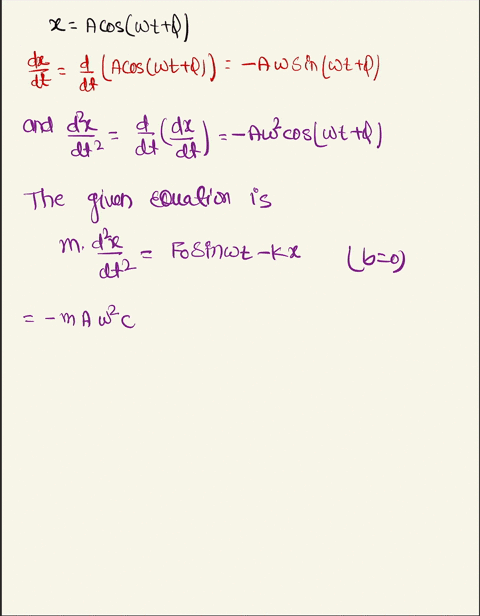 x = A cos(ωt+φ)
dx/dt = d/dt (A cos(ωt+φ)) = -Aω sin(ωt+φ)
and d²x/dt² = d/dt (dx/dt) = -Aω² cos(ωt+φ)
The given equation is
m. d²x/dt² = F₀ sin ωt - kx (b=0)
= -m A ω² c